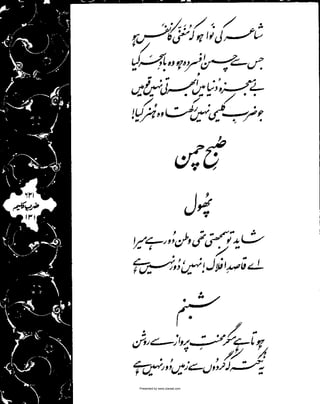 شاعر کی نوا ہو کہ مغنّی کا نفس ہو
جس سے چمن افسردہ ہو وہ بادِ سحر کیا
بے معجزہ دنیا میں ابھرتی نہیں قومیں
جو ضربِ کلیمی نہیں رکھتا وہ ہنر کیا!
صبحِ چمن
پھول
شاید تو سمجھتی تھی وطن دور ہے میرا
اے قاصدِ افلاک! نہیں، دور نہیں ہے
شبنم
ہوتا ہے مگر محنتِ پرواز سے روشن
یہ نکتہ کہ گردوں سے زمیں دور نہیں ہے
۶۳۱
ضربِ کلیم
۱۳۱
Presented by www.ziaraat.com